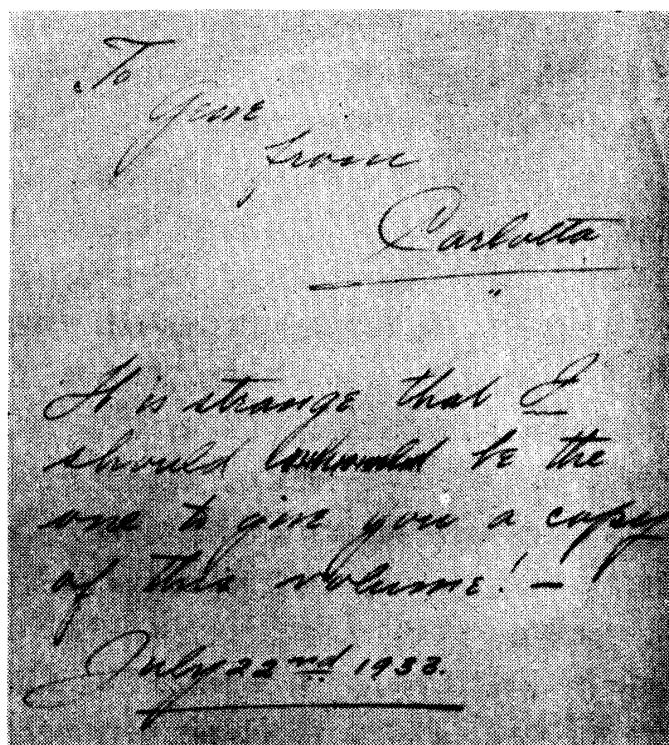 To
Gene
from
Carlotta
"
It is strange that I
should be the
one to give you a copy
of this volume! –
July 22nd 1933.